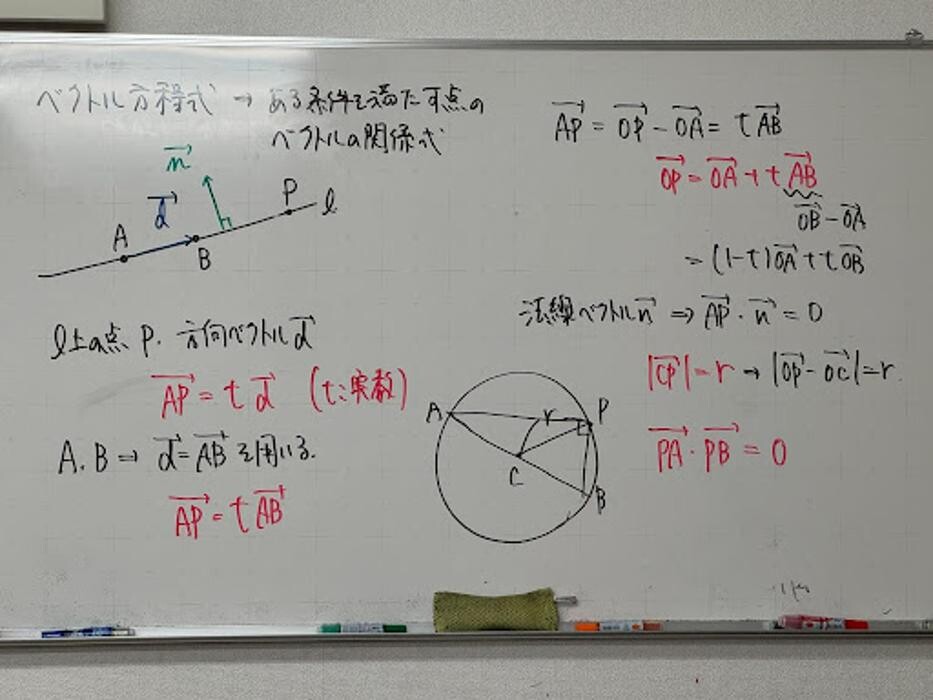 ベクトル方程式 → ある条件を満たす点の
ベクトルの関係式
n→
d→
A
B
P
l
l上の点 P. 方向ベクトルd→
AP→ = t d→ (t:実数)
A.B ⇒ d→=AB→ を用いる.
AP→ = t AB→
AP→ = OP→ - OA→ = t AB→
OP→ = OA→ + t AB→
OB→ - OA→
= (1-t)OA→ + t OB→
法線ベクトルn→ ⇒ AP→ ・ n→ = 0
|CP→| = r → |OP→ - OC→| = r.
PA→ ・ PB→ = 0
A
r
P
C
B